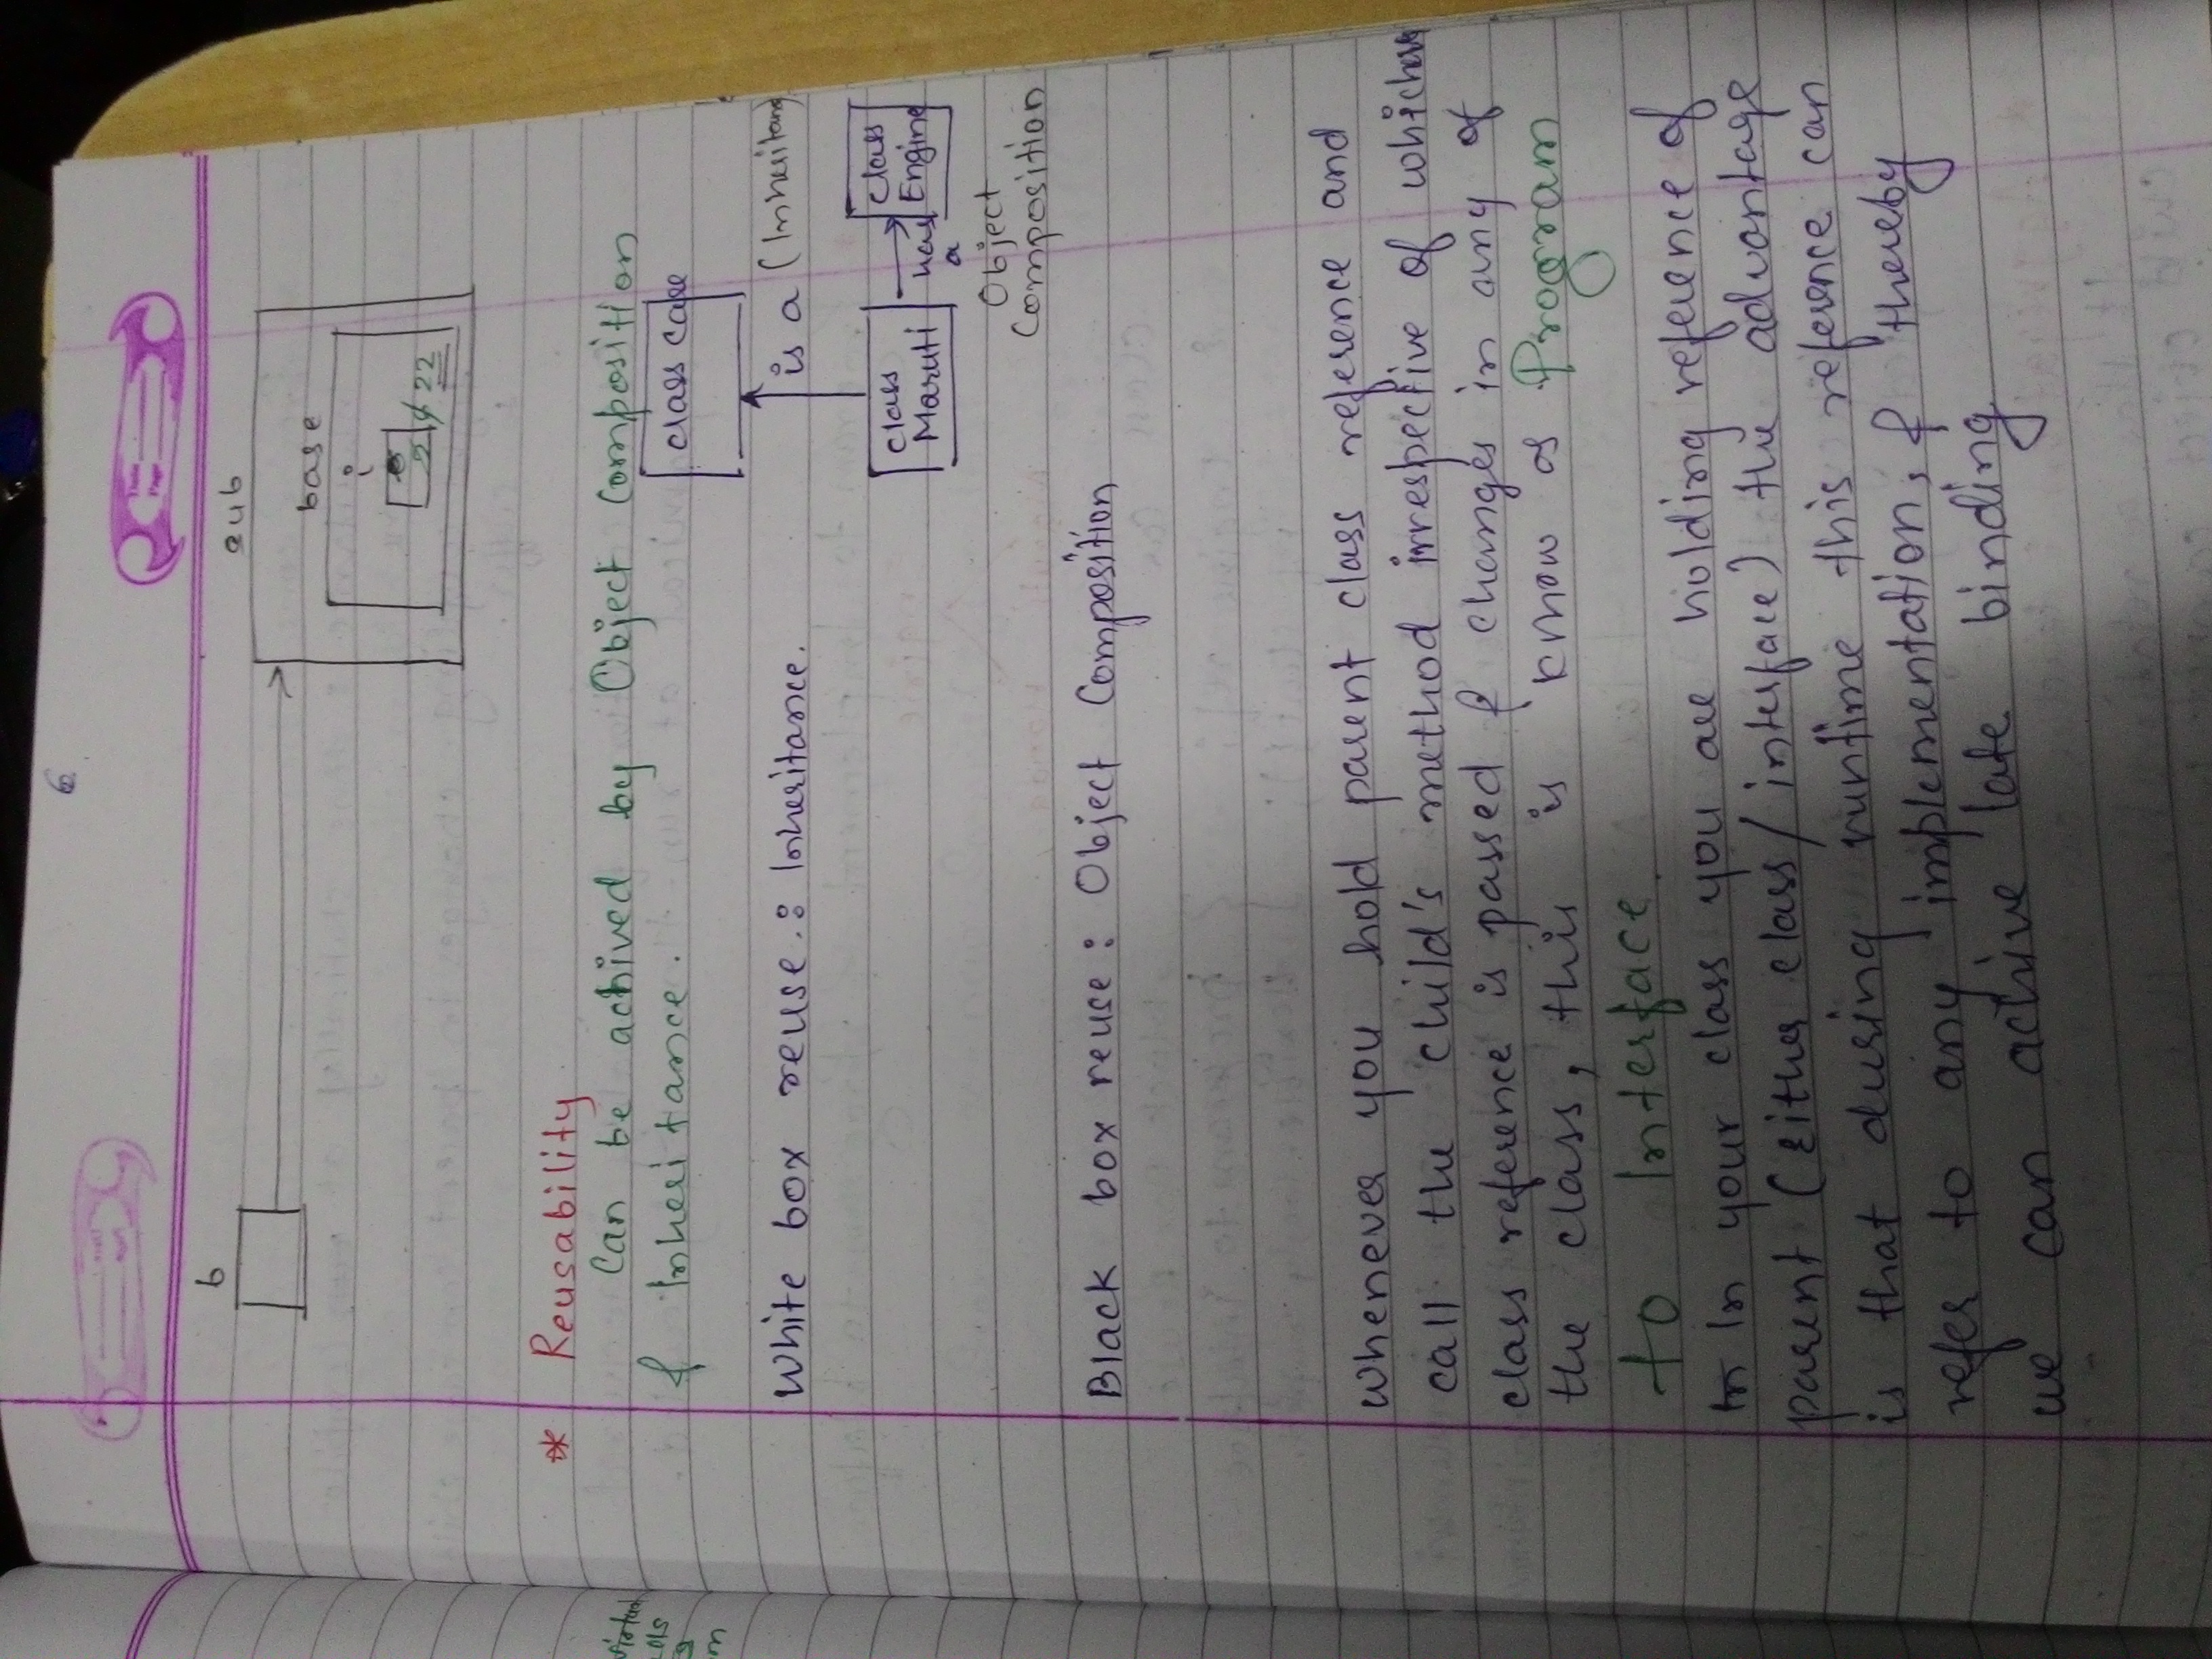 6
Date
Page
b
sub
base
i
2 22
* Reusability
Can be achived by Object Composition
& Inheritance.
class care
White box reuse : Inheritance.
is a (Inheritance)
class
Maruti
has
a
class
Engine
Object
Composition
Black box reuse : Object Composition
Whenever you hold parent class reference and
call the child's method irrespective of whichever
class reference is passed & changes in any of
the class, this is know as Program
to Interface
In your class you are holding reference of
parent (either class / interface) the advantage
is that during runtime this reference can
refer to any implementation, & thereby
we can achive late binding